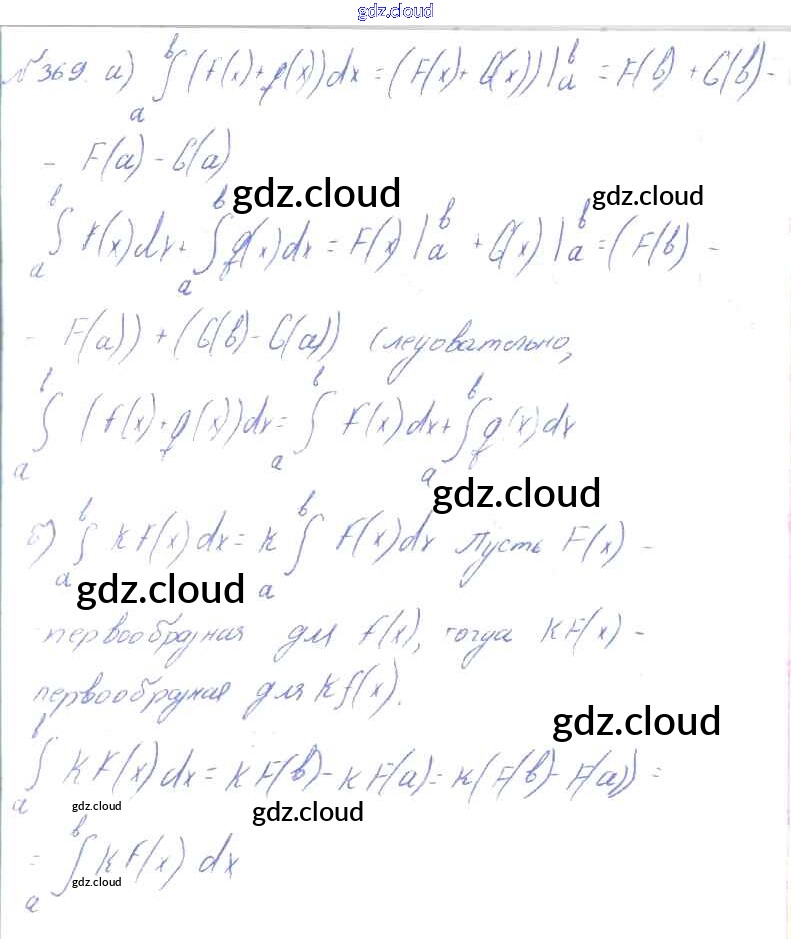 gdz.cloud
№ 369. а) ∫ₐᵇ (f(x) + g(x)) dx = (F(x) + G(x)) |ₐᵇ = F(b) + G(b) -
- F(a) - G(a)
gdz.cloud gdz.cloud
∫ₐᵇ f(x) dx + ∫ₐᵇ g(x) dx = F(x) |ₐᵇ + G(x) |ₐᵇ = (F(b) -
- F(a)) + (G(b) - G(a)) Следовательно,
∫ₐᵇ (f(x) + g(x)) dx = ∫ₐᵇ f(x) dx + ∫ₐᵇ g(x) dx
gdz.cloud
б) ∫ₐᵇ kf(x) dx = k ∫ₐᵇ f(x) dx Пусть F(x) -
gdz.cloud
первообразная для f(x), тогда kF(x) -
первообразная для kf(x).
gdz.cloud
∫ₐᵇ kf(x) dx = kF(b) - kF(a) = k(F(b) - F(a)) =
gdz.cloud gdz.cloud
= ∫ₐᵇ kf(x) dx
gdz.cloud